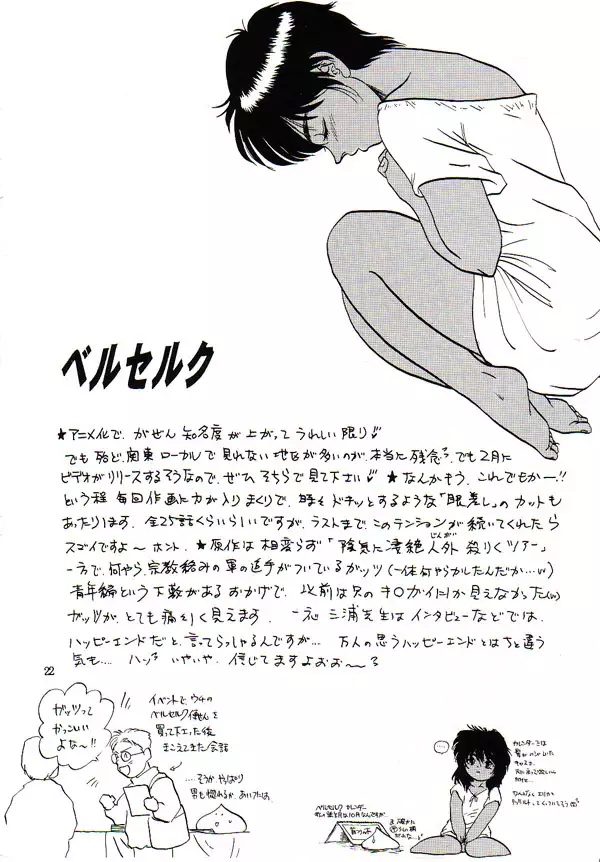 ベルセルク
★アニメ化で、がぜん知名度が上がってうれしい限り
でも殆ど、関東ローカルで見れない地区が多いのが、本当に残念。でも2月に
ビデオがリリースするそうなので、ぜひ、そちらで見て下さい ★なんかもう、これでもかー!!
という程毎回作画に力が入りまくりで、時々ドキッとするような「眼差し」のカットも
あったりします。全25話くらいらしいですが、ラストまで、このテンションが続いてくれたら
スゴイですよ〜ホント。★原作は相変らず「陰気に凄絶人外殺りくツアー」
じんがい
一方で、何やら宗教絡みの軍の追手がついているガッツ(一体何やらかしたんだか…)
青年編という下敷があるおかげで、以前は只のキ○ガイにしか見えなかった
ガッツが、とても痛々しく見えます。一応三浦先生はインタビューなどでは、
ハッピーエンドだと、言ってらっしゃるんですが… 万人の思うハッピーエンドとはちと違う
気も… ハッ いやいや、信じてますよおお〜〜
22
ガッツって
かっこいい
よな〜!!
イベントで、ウチの
ベルセルク便せん
を買って下さった後
きこえてきた会話
…そうか、やっぱり
男も惚れるか、あいつには。
…
ベルセルク カレンダー
カレンダーでは